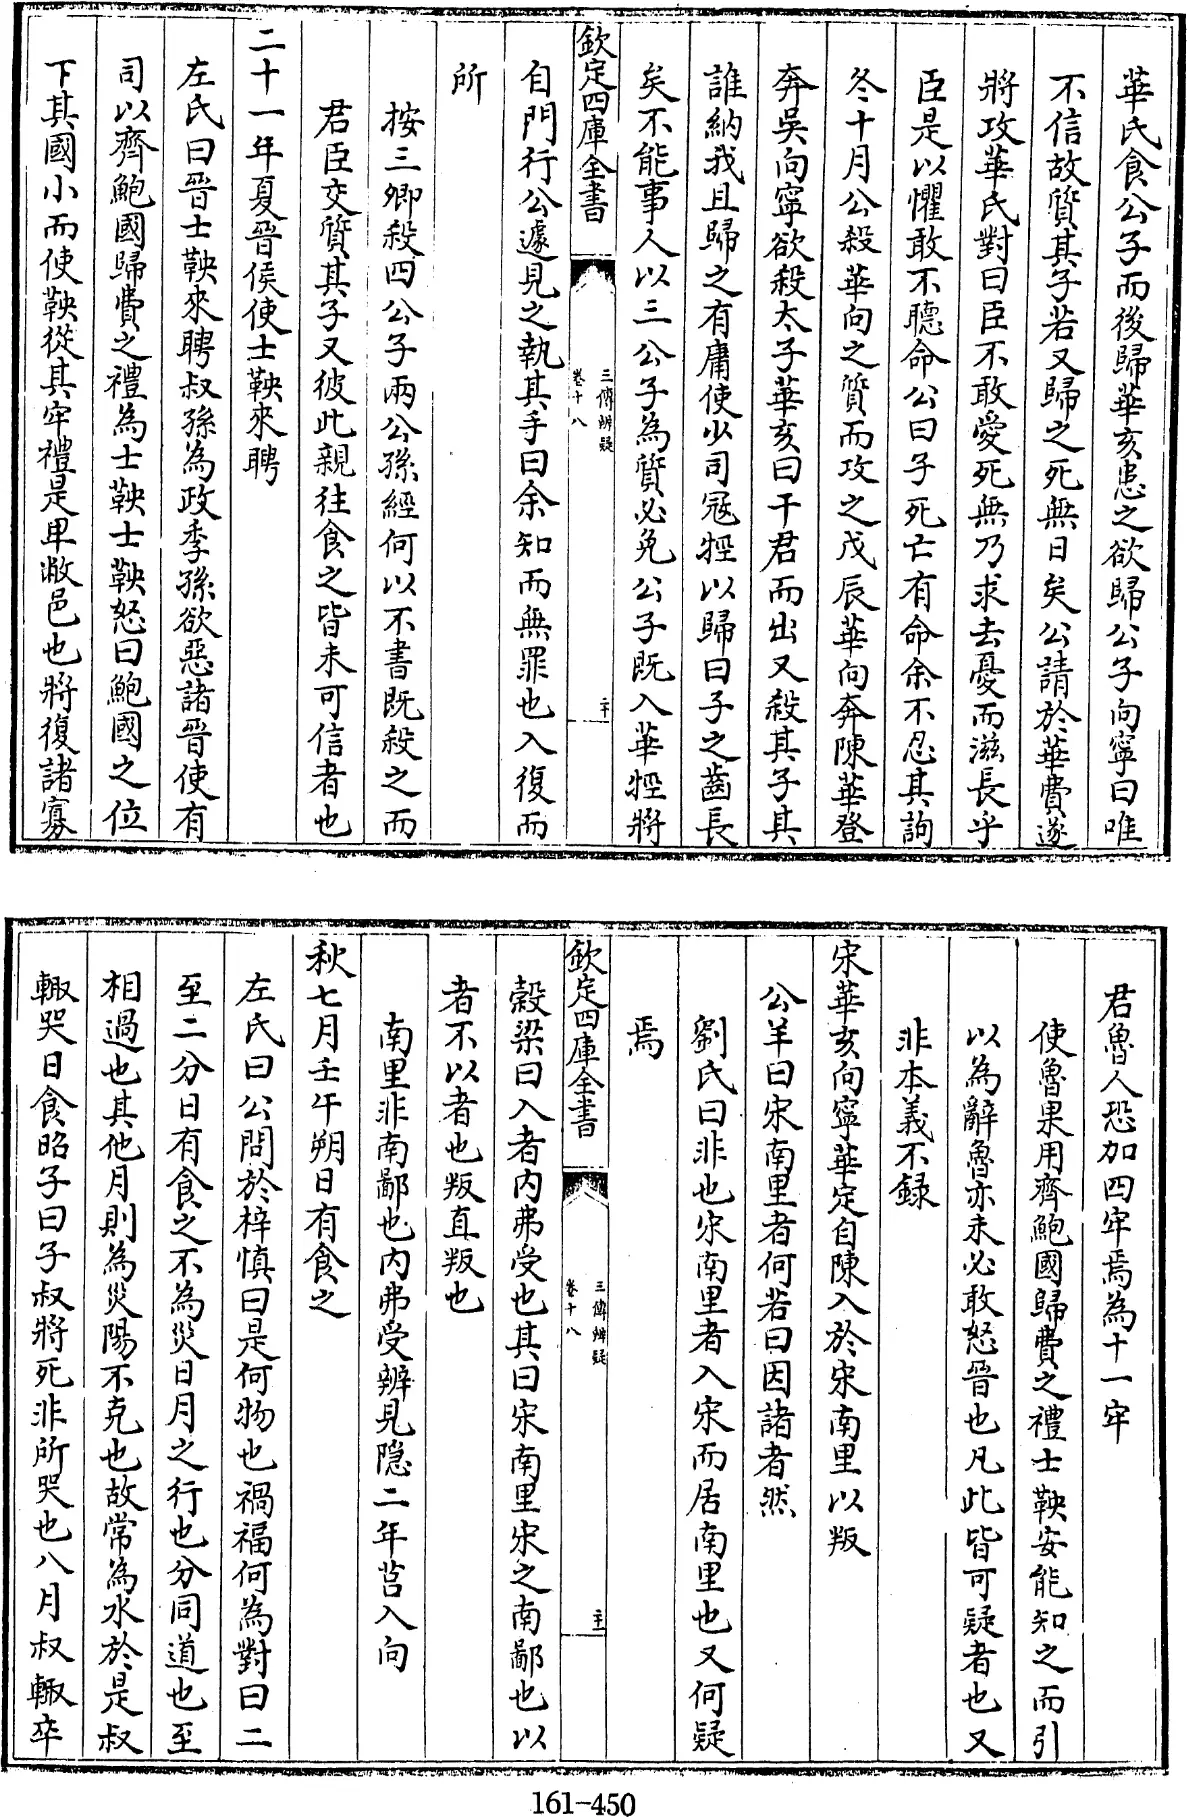 華氏食公子而後歸華亥患之欲歸公子向寧曰唯
不信故質其子若又歸之死無日矣公請於華費遂
將攻華氏對曰臣不敢愛死無乃求去憂而滋長乎
臣是以懼敢不聽命公曰子死亡有命余不忍其訽
冬十月公殺華向之質而攻之戊辰華向奔陳華登
奔吳向寧欲殺太子華亥曰干君而出又殺其子其
誰納我且歸之有庸使少司冦牼以歸曰子之齒長
矣不能事人以三公子為質必免公子既入華牼將
欽定四庫全書
三傳辨疑
卷十八
二十
自門行公遽見之執其手曰余知而無罪也入復而
所
按三卿殺四公子兩公孫經何以不書既殺之而
君臣交質其子又彼此親往食之皆未可信者也
二十一年夏晉侯使士鞅來聘
左氏曰晉士鞅來聘叔孫為政季孫欲惡諸晉使有
司以齊鮑國歸費之禮為士鞅士鞅怒曰鮑國之位
下其國小而使鞅從其牢禮是卑敝邑也將復諸寡
君魯人恐加四牢焉為十一牢
使魯果用齊鮑國歸費之禮士鞅安能知之而引
以為辭魯亦未必敢怒晉也凡此皆可疑者也又
非本義不録
宋華亥向寧華定自陳入於宋南里以叛
公羊曰宋南里者何若曰因諸者然
劉氏曰非也宋南里者入宋而居南里也又何疑
焉
欽定四庫全書
三傳辨疑
卷十八
二十一
穀梁曰入者内弗受也其曰宋南里宋之南鄙也以
者不以者也叛直叛也
南里非南鄙也内弗受辨見隠二年莒入向
秋七月壬午朔日有食之
左氏曰公問於梓慎曰是何物也禍福何為對曰二
至二分日有食之不為災日月之行也分同道也至
相過也其他月則為災陽不克也故常為水於是叔
輙哭日食昭子曰子叔將死非所哭也八月叔輙卒
161-450